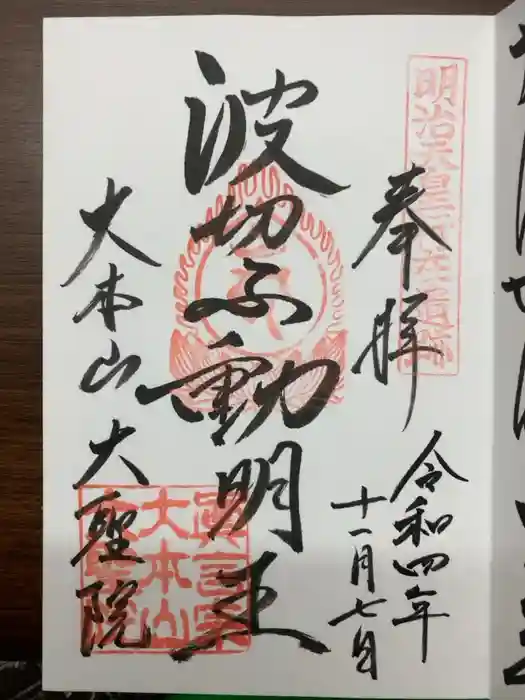 明治天皇行在遺跡
奉拝
令和四年
十一月七日
波切不動明王
大本山大聖院
真言宗
大本山
大聖院